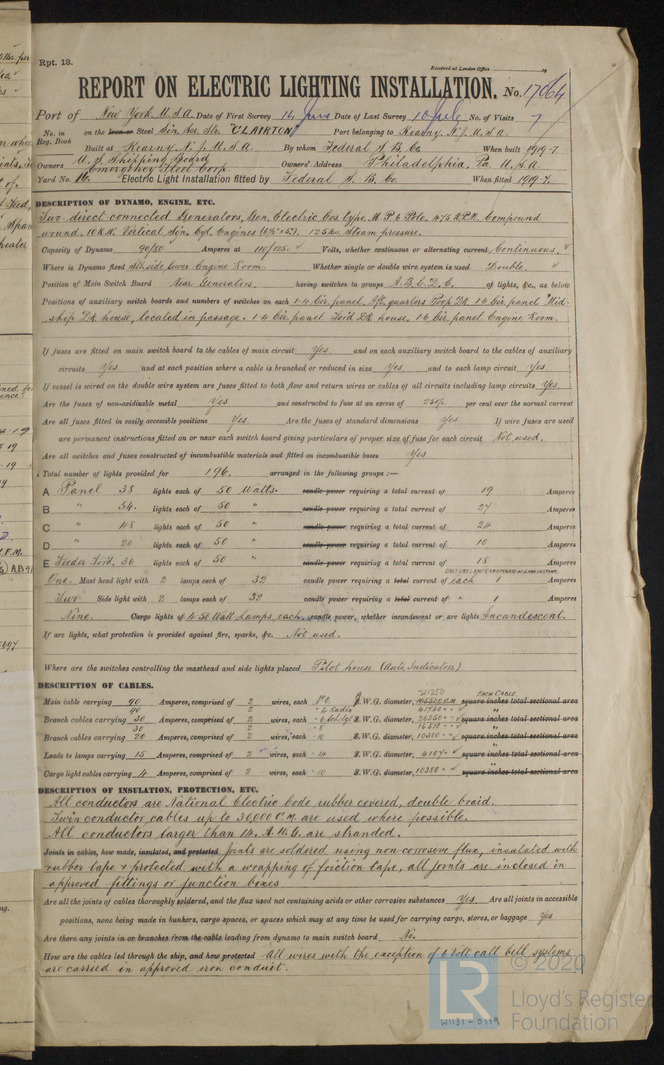 Rpt. 13.
Received at London Office
REPORT ON ELECTRIC LIGHTING INSTALLATION. No. 17064
Port of New York. U.S.A. Date of First Survey 14 June Date of Last Survey 10 July No. of Visits 7
No. in Reg. Book on the Iron or Steel Sin. Scr. Str. "CLAIRTON" Port belonging to Kearny. N.J. U.S.A.
Built at Kearny. N.J. U.S.A. By whom Federal S. B. Co. When built 1919-7.
Owners U.S. Shipping Board Emergency Fleet Corp. Owners' Address Philadelphia, Pa. U.S.A
Yard No. 16. Electric Light Installation fitted by Federal S. B. Co. When fitted 1919-7.
DESCRIPTION OF DYNAMO, ENGINE, ETC.
Two direct connected Generators, Gen. Electric Cos. type M.P. 6 Pole. 475 R.P.M. Compound
wound. 10 K.W. Vertical Sin. Cyl. Engines 125 lb. Steam pressure.
Capacity of Dynamo 90/80 Amperes at 110/125 Volts, whether continuous or alternating current Continuous.
Where is Dynamo fixed Stbside lower Engine Room. Whether single or double wire system is used Double.
Position of Main Switch Board Near Generators. having switches to groups A.B.C.D.E. of lights, &c., as below
Positions of auxiliary switch boards and numbers of switches on each 1-4 Cir. panel Aft. quarters Poop Dk. 1-6 Cir. panel Mid-
ship Dk. house, located in passage. 1-4 Cir. panel For'd Dk. house. 1-6 Cir. panel Engine Room.
If fuses are fitted on main switch board to the cables of main circuit Yes and on each auxiliary switch board to the cables of auxiliary
circuits Yes and at each position where a cable is branched or reduced in size Yes. and to each lamp circuit Yes
If vessel is wired on the double wire system are fuses fitted to both flow and return wires or cables of all circuits including lamp circuits Yes
Are the fuses of non-oxidizable metal Yes and constructed to fuse at an excess of 25% per cent over the normal current
Are all fuses fitted in easily accessible positions Yes. Are the fuses of standard dimensions Yes If wire fuses are used
are permanent instructions fitted on or near each switch board giving particulars of proper size of fuse for each circuit Not used.
Are all switches and fuses constructed of incombustible materials and fitted on incombustible bases Yes
Total number of lights provided for 196. arranged in the following groups :—
A Panel 38 lights each of 50 Watts. candle power requiring a total current of 19 Amperes
B " 54. lights each of 50 " candle power requiring a total current of 27 Amperes
C " 48 lights each of 50 " candle power requiring a total current of 24 Amperes
D " 20 lights each of 50 " candle power requiring a total current of 10 Amperes
E Feeder Ford. 36 lights each of 50 " candle power requiring a total current of 18 Amperes
One Mast head light with 2 lamps each of 32 candle power requiring a total current of each 1 Amperes
Two Side light with 2 lamps each of 32 candle power requiring a total current of " 1 Amperes
Nine. Cargo lights of 4-50 Watt Lamps each candle power, whether incandescent or arc lights Incandescent.
If arc lights, what protection is provided against fire, sparks, &c. Not used.
Where are the switches controlling the masthead and side lights placed Pilot house (Auto. Indicators)
DESCRIPTION OF CABLES.
EACH CABLE
Main cable carrying 90 Amperes, comprised of 2 wires, each No. 0. S.W.G. diameter, 105500 C.M square inches total sectional area
40 2 - 4 41740
Branch cables carrying 30 Amperes, comprised of 2 wires, each - 6 S.W.G. diameter, 26250 square inches total sectional area
30 2 - 8 16510
Branch cables carrying 20 Amperes, comprised of 2 wires, each - 10 S.W.G. diameter, 10380 square inches total sectional area
Leads to lamps carrying 15 Amperes, comprised of 2 wires, each - 14 S.W.G. diameter, 4107 square inches total sectional area
Cargo light cables carrying 4 Amperes, comprised of 2 wires, each - 10 S.W.G. diameter, 10380 square inches total sectional area
DESCRIPTION OF INSULATION, PROTECTION, ETC.
All conductors are National Electric Code rubber covered, double braid.
Twin conductor cables up to 30,000 C.M. are used where possible.
All conductors larger than 14. A.W.G. are stranded.
Joints in cables, how made, insulated, and protected Joints are soldered using non corrosive flux, insulated with
rubber tape & protected with a wrapping of friction tape, all joints are inclosed in
approved fittings or junction boxes
Are all the joints of cables thoroughly soldered, and the flux used not containing acids or other corrosive substances Yes Are all joints in accessible
positions, none being made in bunkers, cargo spaces, or spaces which may at any time be used for carrying cargo, stores, or baggage Yes
Are there any joints in or branches from the cable leading from dynamo to main switch board No.
How are the cables led through the ship, and how protected All wires with the exception of 6 volt call bell systems
are carried in approved iron conduit.
© 2020
LR
Lloyd's Register
Foundation
W1131-0119